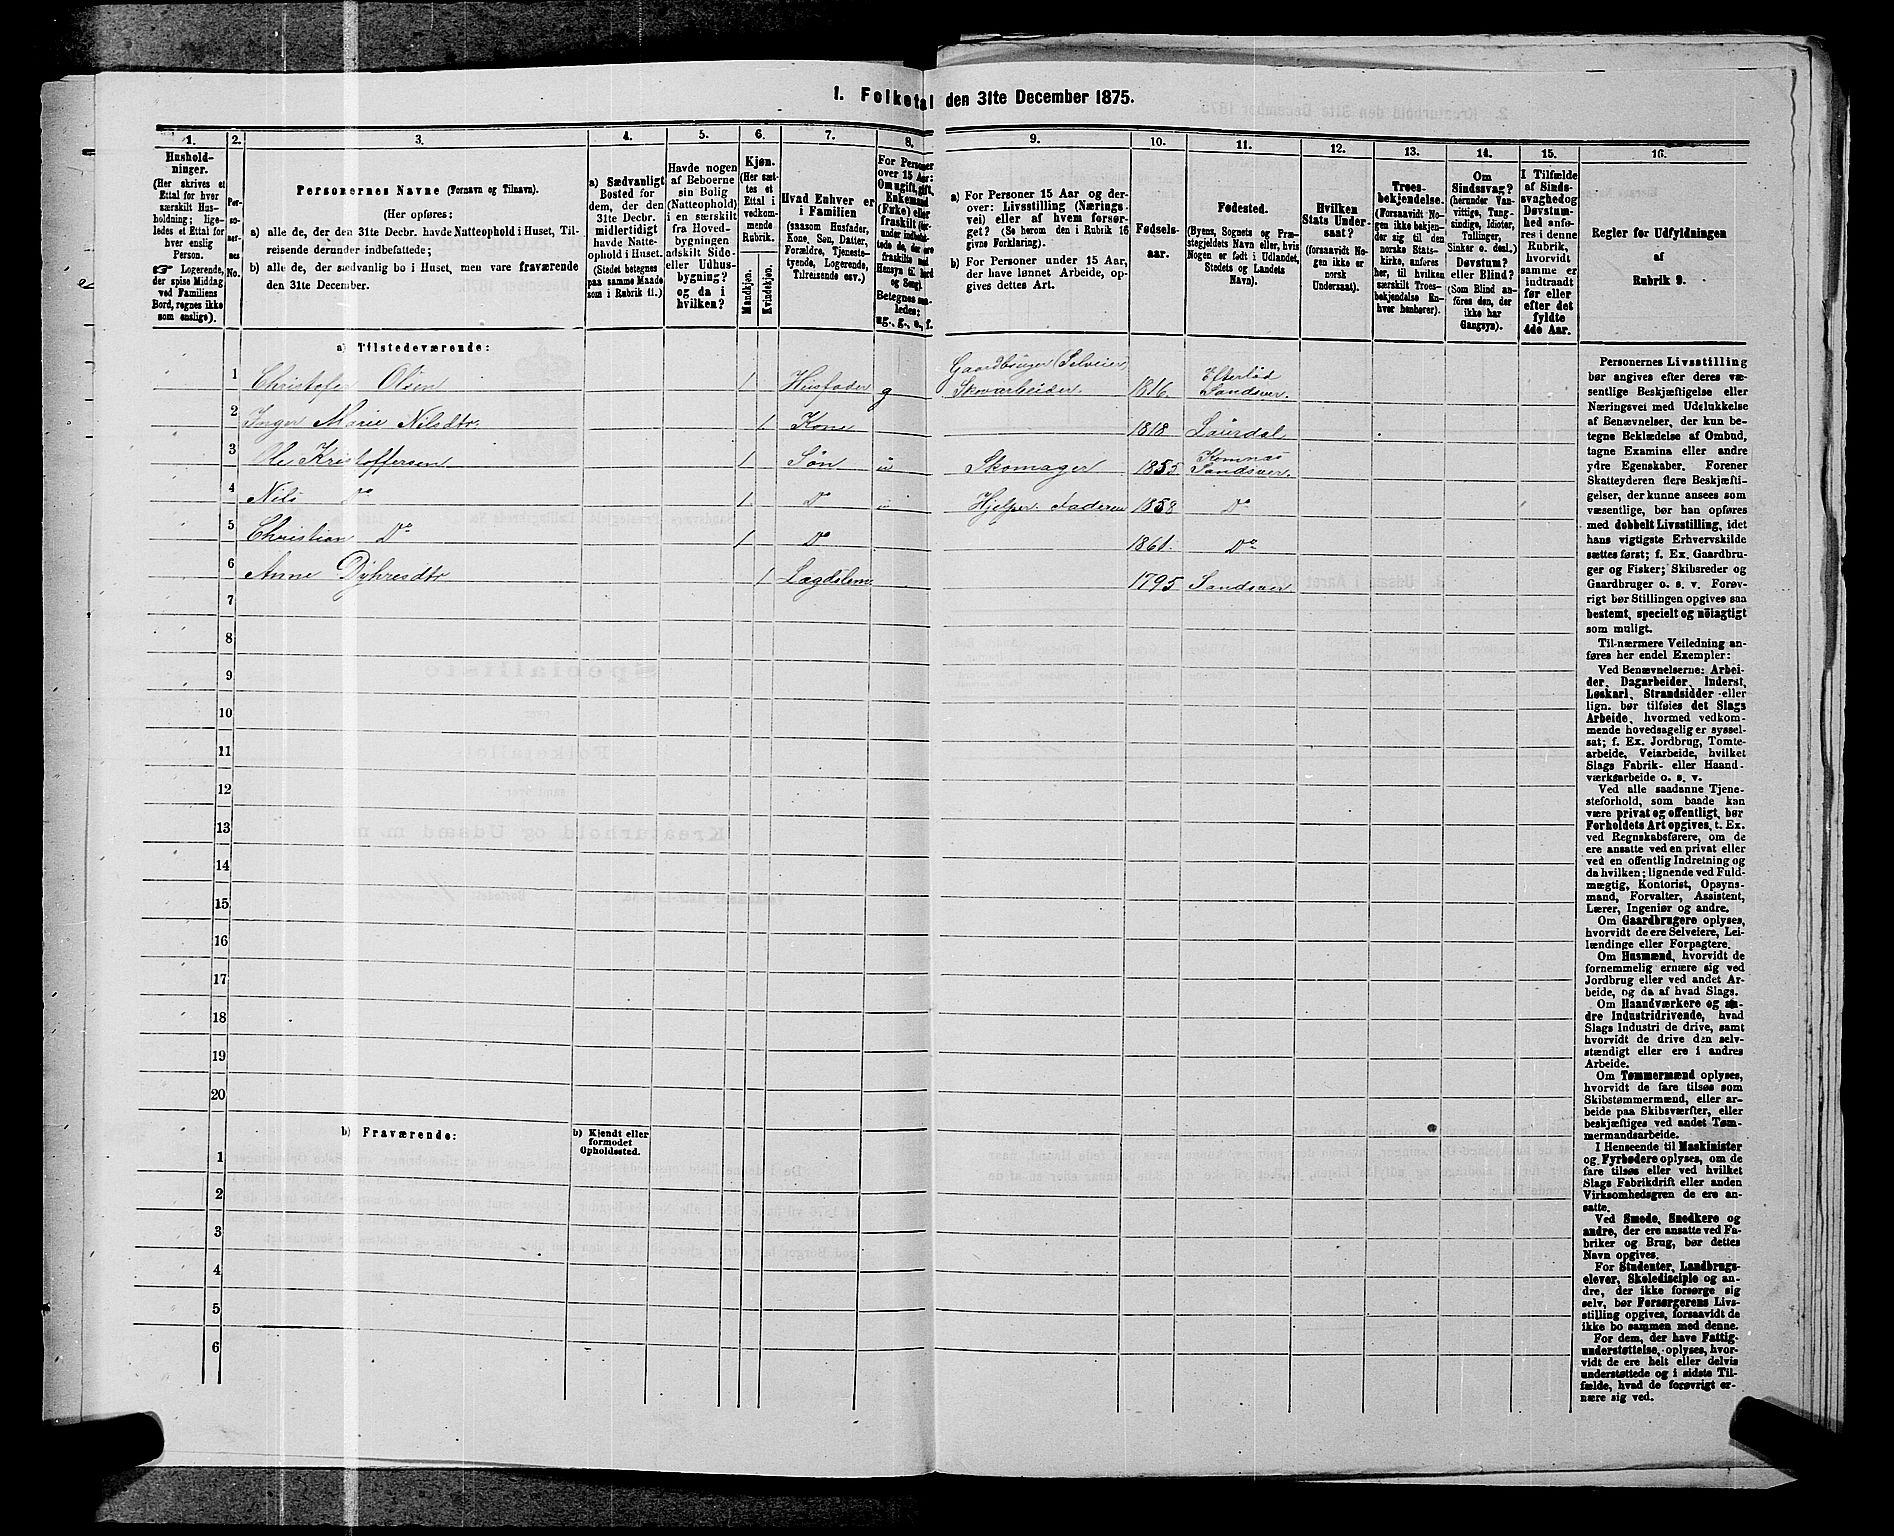 1. Folketal den 31te December 1875.
1. 2. 3. 4. 5. 6. 7. 8. 9. 10. 11. 12. 13. 14. 15. 16.
Hushold-
ninger.
(Her skrives et
Ettal for hver
særskilt Hus-
holdning; lige-
ledes et Ettal for
hver enslig
Person.
☞ Logerende,
der spise Middag
ved Familiens
Bord, regnes ikke
som enslige).
Per-
so-
ner-
nes
No.
Personernes Navne (Fornavn og Tilnavn).
(Her opføres:
a) alle de, der den 31te Decbr. havde Natteophold i Huset, Til-
reisende derunder indbefattede;
b) alle de, der sædvanlig bo i Huset, men vare fraværende
den 31te December.
a) Sædvanligt
Bosted for
dem, der den
31te Decbr.
midlertidigt
havde Natte-
ophold i Huset.
(Stedet betegnes
paa samme Maade
som i Rubrik 11.)
Havde nogen
af Beboerne
sin Bolig
(Natteophold)
i en særskilt
fra Hoved-
bygningen
adskilt Side-
eller Udhus-
bygning?
og da i
hvilken?
Kjøn.
(Her sæt-
tes et
Ettal i
vedkom-
mende
Rubrik.
Mandkjøn.
Kvindekjøn.
Hvad Enhver er
i Familien
(saasom Husfader,
Kone, Søn, Datter,
Forældre, Tjeneste-
tyende, Logerende,
Tilreisende osv.)
For Personer
over 15 Aar:
Om ugift, gift,
Enkemand
(Enke) eller
fraskilt
Betegnes saa-
ledes:
ug., g., e., f.
a) For Personer 15 Aar og der-
over: Livsstilling (Nærings-
vei) eller af hvem forsør-
get? (Se herom den i Rubrik 16
givne Forklaring).
b) For Personer under 15 Aar,
der have lønnet Arbeide, op-
gives dettes Art.
Fødsels-
aar.
Fødested.
(Byens, Sognets og Præ-
stegjeldets Navn eller, hvis
Nogen er født i Udlandet,
Stedets og Landets
Navn).
Hvilken
Stats Under-
saat?
(forsaavidt No-
gen ikke er
norsk
Undersaat).
Troes-
bekjendelse.
(Forsaavidt No-
gen ikke bekjen-
der sig til den
norske Stats-
kirke, anføres
her, til hvilken
særskilt Troes-
bekjendelse En-
hver henhører).
Om
Sindssvag?
(herunder Van-
vittige, Tung-
sindige, Idioter,
Tullinger,
Sinker o. desl.)
Døvstum?
eller Blind?
(Som Blind an-
føres den, der
ikke har
Gangsyn).
I Tilfælde
af Sinds-
svaghed og
Døvstum-
hed anfø-
res i denne
Rubrik,
hvorvidt
samme er
indtraadt
før eller
efter det
fyldte
4de Aar.
Regler for Udfyldningen
af
Rubrik 9.
a) Tilstedeværende:
1 Christofer Olsen 1 Husfader g Gaardbruger (Selveier) Skovarbeider. 1816. Efterlød Sandsver.
2 Inger Marie Nilsdtr. 1 Kone 1818 Laurdal
3 Ole Kristoffersen 1 Søn u Skomager 1855 Komnæs Sandsver.
4 Nils Do 1 Do u Hjelper Faderen 1858 Do
5 Christian Do 1 Do 1861. Do
6 Anne Dyhresdtr 1 Lægdslem 1795 Sandsver
7
8
9
10
11
12
13
14
15
16
17
18
19
20
b) Fraværende:
b) Kjendt eller
formodet
Opholdssted.
1
2
3
4
5
6
Personernes Livsstilling
bør angives efter deres væ-
sentlige Beskjæftigelse eller
Næringsvei med Udelukkelse
af Benævnelser, der kun be-
tegne Beklædelse af Ombud,
tagne Examina eller andre
ydre Egenskaber. Forener
Skatteyderen flere Beskjæfti-
gelser, der kunne ansees som
væsentlige, bør han opføres
med dobbelt Livsstilling, idet
hans vigtigste Erhvervskilde
sættes først; f. Ex. Gaardbru-
ger og Fisker; Skibsreder og
Gaardbruger o. s. v. Forøv-
rigt bør Stillingen opgives saa
bestemt, specielt og nöiagtigt
som muligt.
Til nærmere Veiledning an-
føres her endel Exempler:
Ved Benævnelserne: Arbei-
der, Dagarbeider, Inderst,
Løskarl, Strandsidder eller
lign. bør tilføies det Slags
Arbeide, hvormed vedkom-
mende hovedsagelig er syssel-
sat; f. Ex. Jordbrug, Tomte-
arbeide, Veiarbeide, hvilket
Slags Fabrik- eller Haand-
værksarbeide o. s. v.
Ved alle saadanne Tjene-
steforhold, som baade kan
være privat og offentligt, bør
Forholdets Art opgives, t. Ex.
ved Regnskabsførere, om de
ere ansatte ved en privat eller
ved en offentlig Indretning og
da hvilken; lignende ved Fuld-
mægtig, Kontorist, Opsyns-
mand, Forvalter, Assistent,
Lærer, Ingeniør og andre.
Om Gaardbrugere oplyses,
hvorvidt de ere Selveiere, Lei-
lændinge eller Forpagtere.
Om Husmænd, hvorvidt de
fornemmelig ernære sig ved
Jordbrug eller ved andet Ar-
beide, og da af hvad Slags.
Om Haandværkere og an-
dre Industridrivende, hvad
Slags Industri de drive, samt
hvorvidt de drive den selv-
stændigt eller ere i andres
Arbeide.
Om Tømmermænd oplyses,
hvorvidt de fare tilsøs som
Skibstømmermænd, eller ar-
beide paa Skibsværfter, eller
beskjæftiges ved andet Tøm-
mermandsarbeide.
I Henseende til Maskinister
og Fyrbødere oplyses, om de
fare tilsøs eller ved hvilket
Slags Fabrikdrift eller anden
Virksomhedsgren de ere an-
satte.
Ved Smede, Snedkere og
andre, der ere ansatte ved Fa-
briker og Brug, bør dettes
Navn opgives.
For Studenter, Landbrugs-
elever, Skoledisciple og an-
dre, der ikke forsørge sig
selv, bør Forsørgerens Livs-
stilling opgives, forsaavidt de
ikke bo sammen med denne.
For dem, der have Fattig-
understøttelse, oplyses, hvor-
vidt de ere helt eller delvis
understøttede og i sidste Til-
fælde, hvad de forøvrigt er-
nære sig ved.